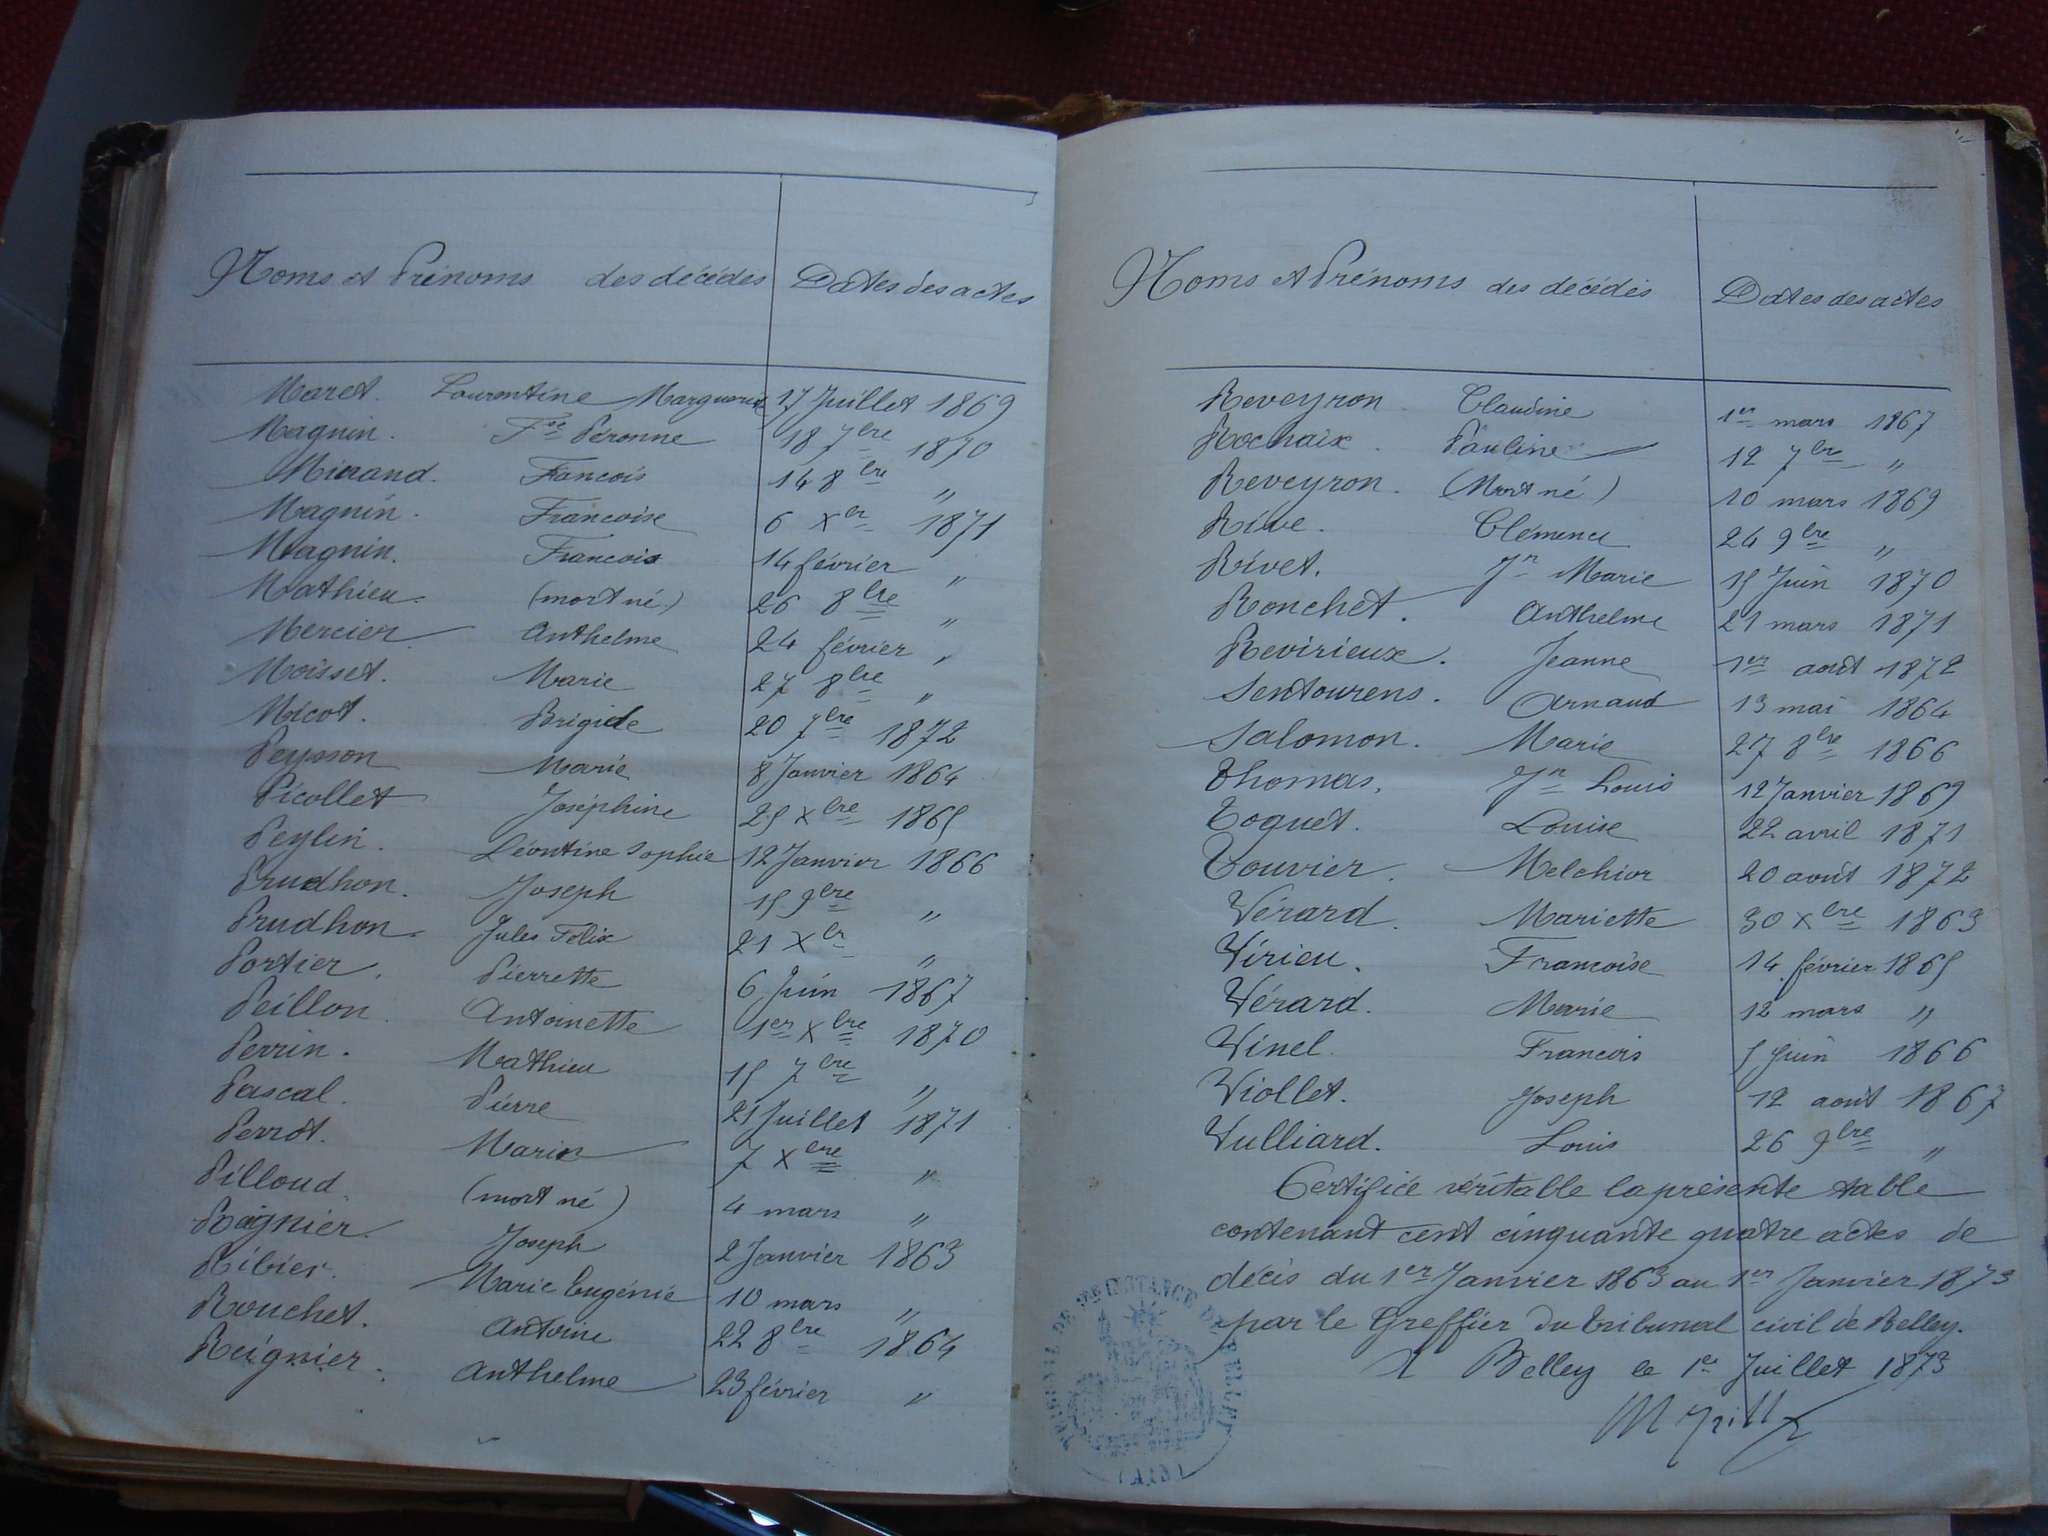 Noms et Prénoms des décédés Dates des actes
Maret. Laurentine Marguerite 17 Juillet 1869
Magnin. Fse Péronne 18 7bre 1870
Mierand. Francois 14 8bre "
Magnin. Francoise 6 Xbr 1871
Magnin. Francois 14 février "
Mathieu. (mort né.) 26 8bre "
Mercier. Anthelme 24 février "
Moisset. Marie 27 8bre "
Micot. Brigide 20 7bre 1872
Peysson Marie 8 Janvier 1864
Picollet Joséphine 25 Xbre 1865
Peylin. Léontine Sophie 12 Janvier 1866
Prudhon. Joseph 15 9bre "
Prudhon. Jules Félix 21 Xbr "
Portier. Pierrette 6 Juin 1867
Peillon. Antoinette 1er Xbre 1870
Perrin. Mathieu 15 7bre "
Pascal. Pierre 21 Juillet 1871
Perrot. Marie 7 Xbre "
Pilloud. (mort né) 4 mars "
Reignier. Joseph 2 Janvier 1863
Ribier. Marie Eugénie 10 mars "
Rouchet. Antoine 22 8bre 1864
Reignier. Anthelme 23 février "
Noms et Prénoms des décédés Dates des actes
Reveyron. Claudine 1er mars 1867
Rochaix. Pauline 12 7bre "
Reveyron. (Mort né) 10 mars 1869
Rive. Clémence 24 9bre "
Rivet. Jn Marie 15 Juin 1870
Ronchet. Anthelme 21 mars 1871
Revirieux. Jeanne 1er août 1872
Sentourens. Arnaud 13 mai 1864
Salomon. Marie 27 8bre 1866
Thomas. Jn Louis 12 Janvier 1869
Toguet. Louise 22 avril 1871
Touvier. Melchior 20 août 1872
Vérard. Mariette 30 Xbre 1863
Virieu. Francoise 14 février 1865
Vérard. Marie 12 mars "
Vinel. Francois 5 Juin 1866
Viollet. Joseph 12 août 1867
Vulliard. Louis 26 9bre "
Certifiée véritable la présente table
contenant cent cinquante quatre actes de
décès du 1er Janvier 1863 au 1er Janvier 1873
par le Greffier du tribunal civil de Belley.
A Belley le 1er Juillet 1873
TRIBUNAL DE 1RE INSTANCE DE BELLEY
(AIN)